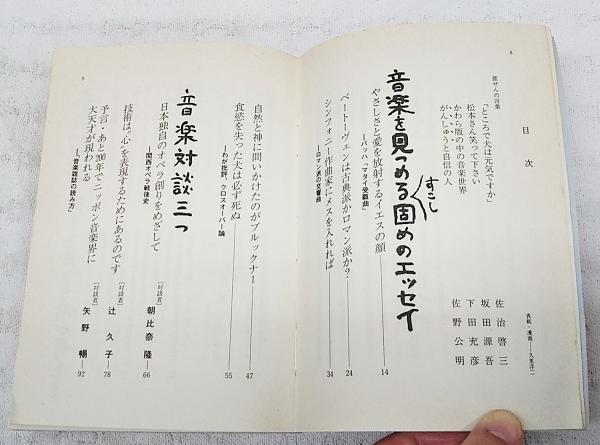 8
目次
推せんの言葉
「ところで犬は元気ですか」 佐治啓三
松本さん笑って下さい 坂田源吾
かわら版の中の音楽世界 下田充彦
がんしゅうと自信の人 佐野公明
表紙・漫画―久里洋二
音楽を見つめるすこし固めのエッセイ
やさしさと愛を放射するイエスの顔
―バッハ「マタイ受難曲」 14
ベートーヴェンは古典派かロマン派か? 24
シンフォニー作曲家にメスを入れれば
―ロマン派の交響曲 34
9
自然と神に問いかけたのがブルックナー 47
食慾を失った犬は必ず死ぬ
―わが批評、クロスオーバー論 55
音楽対談三つ
日本独自のオペラ創りをめざして
―関西オペラ戦後史 〔対談者〕 朝比奈隆―66
技術は、心を表現するためにあるのです 〔対談者〕 辻久子―78
予言・あと200年でニッポン音楽界に
大天才が現われる
―「音楽雑誌の読み方」 〔対談者〕 矢野暢―92